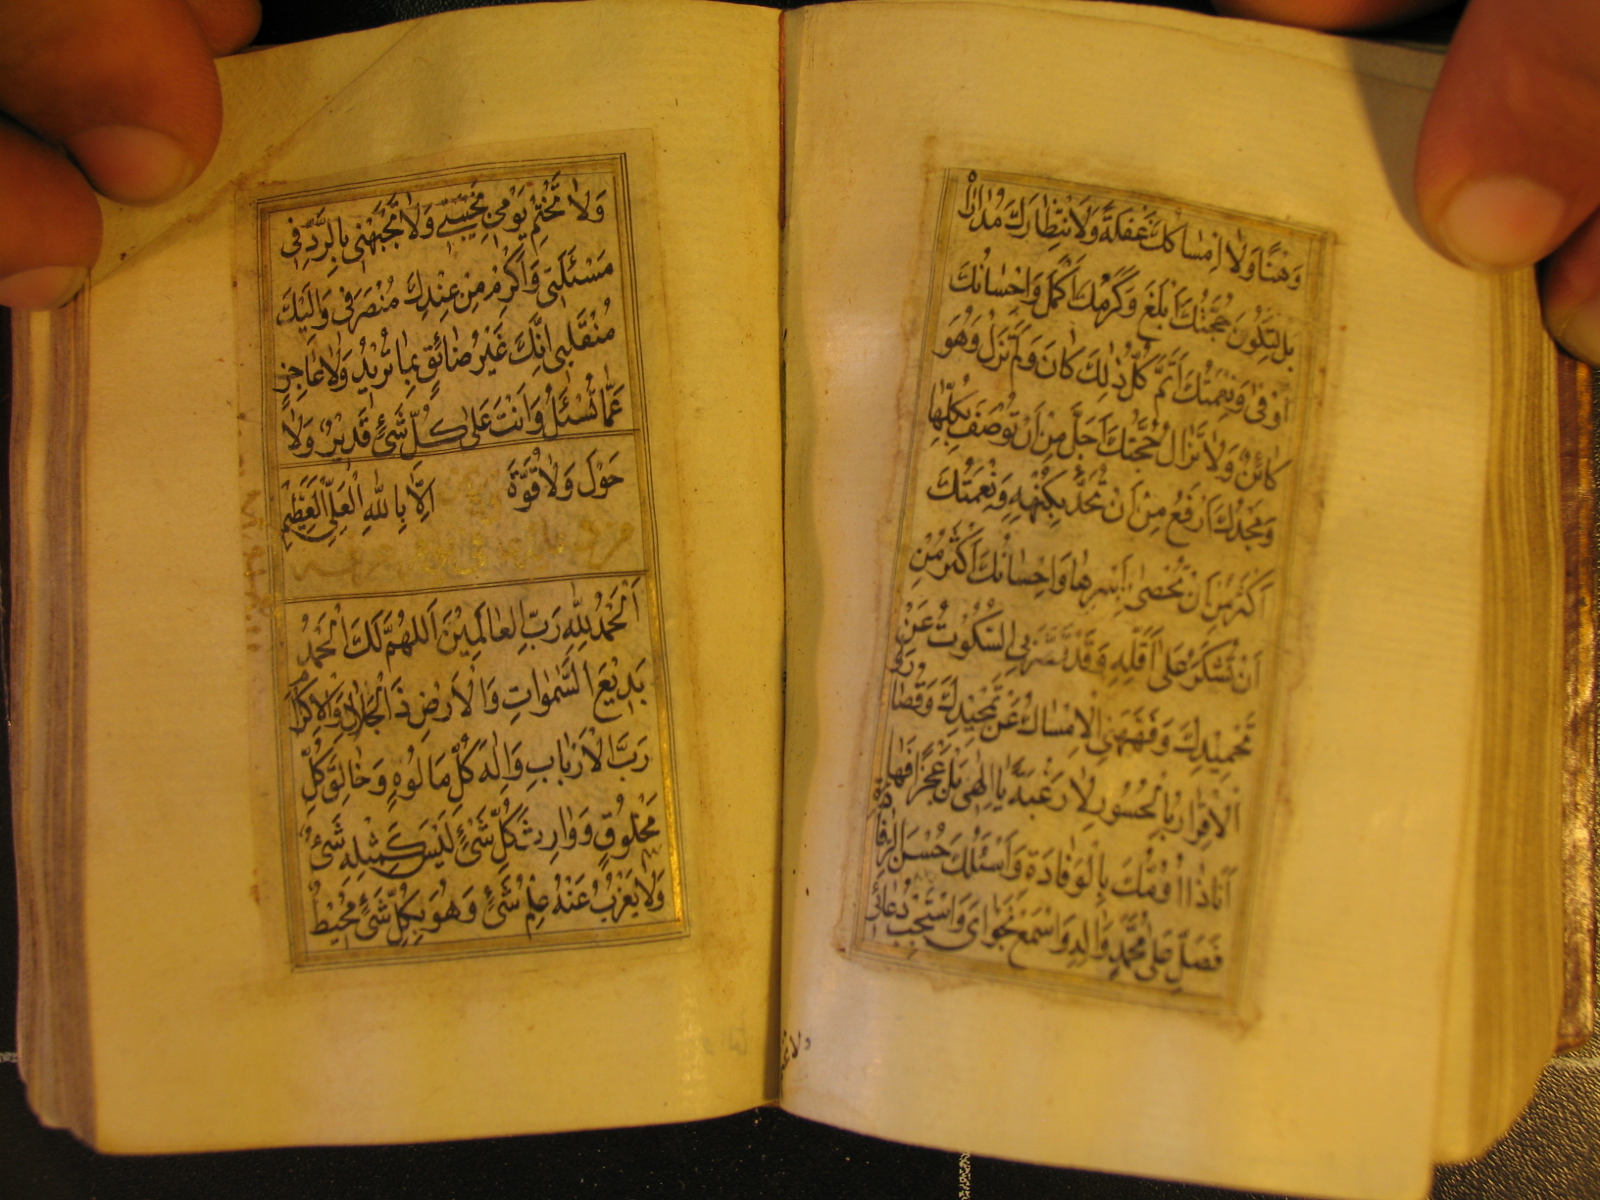 وَهْنًا وَلَا اِمْسَاكُكَ غَفْلَةً وَلَا انْتِظَارُكَ مُدَارَاةً
بَلْ لِتَكُونَ حُجَّتُكَ اَبْلَغَ وَكَرَمُكَ اَكْمَلَ وَاِحْسَانُكَ
اَوْفٰى وَنِعْمَتُكَ اَتَمَّ كُلُّ ذٰلِكَ كَانَ وَلَمْ تَزَلْ وَهُوَ
كَائِنٌ وَلَا تَزَالُ حُجَّتُكَ اَجَلُّ مِنْ اَنْ تُوصَفَ بِكُلِّهَا
وَمَجْدُكَ اَرْفَعُ مِنْ اَنْ تُحَدَّ بِكُنْهِهِ وَنِعْمَتُكَ
اَكْثَرُ مِنْ اَنْ تُحْصٰى بِاَسْرِهَا وَاِحْسَانُكَ اَكْثَرُ مِنْ
اَنْ تُشْكَرَ عَلٰى اَقَلِّهِ وَقَدْ قَصَّرَ بِيَ السُّكُوتُ عَنْ
تَحْمِيدِكَ وَفَهَّهَنِي الْاِمْسَاكُ عَنْ تَمْجِيدِكَ وَقُصَارَايَ
الْاِقْرَارُ بِالْحُسُورِ لَا رَغْبَةً يَا اِلٰهِي بَلْ عَجْزًا فَهَا
اَنَا ذَا اَؤُمُّكَ بِالْوِفَادَةِ وَاَسْئَلُكَ حُسْنَ الرِّفَادَةِ
فَصَلِّ عَلٰى مُحَمَّدٍ وَاٰلِهِ وَاسْمَعْ نَجْوَايَ وَاسْتَجِبْ دُعَائِي
وَلَا تَخْتِمْ يَوْمِي بِخَيْبَتِي وَلَا تَجْبَهْنِي بِالرَّدِّ فِي
مَسْئَلَتِي وَاَكْرِمْ مِنْ عِنْدِكَ مُنْصَرَفِي وَاِلَيْكَ
مُنْقَلَبِي اِنَّكَ غَيْرُ ضَائِقٍ بِمَا تُرِيدُ وَلَا عَاجِزٍ
عَمَّا تُسْئَلُ وَاَنْتَ عَلٰى كُلِّ شَيْءٍ قَدِيرٌ وَلَا
حَوْلَ وَلَا قُوَّةَ اِلَّا بِاللهِ الْعَلِيِّ الْعَظِيمِ
اَلْحَمْدُ لِلّٰهِ رَبِّ الْعَالَمِينَ اَللّٰهُمَّ لَكَ الْحَمْدُ
بَدِيعَ السَّمٰوَاتِ وَالْاَرْضِ ذَا الْجَلَالِ وَالْاِكْرَامِ
رَبَّ الْاَرْبَابِ وَاِلٰهَ كُلِّ مَاْلُوهٍ وَخَالِقَ كُلِّ
مَخْلُوقٍ وَوَارِثَ كُلِّ شَيْءٍ لَيْسَ كَمِثْلِهِ شَيْءٌ
وَلَا يَعْزُبُ عَنْهُ عِلْمُ شَيْءٍ وَهُوَ بِكُلِّ شَيْءٍ مُحِيطٌ